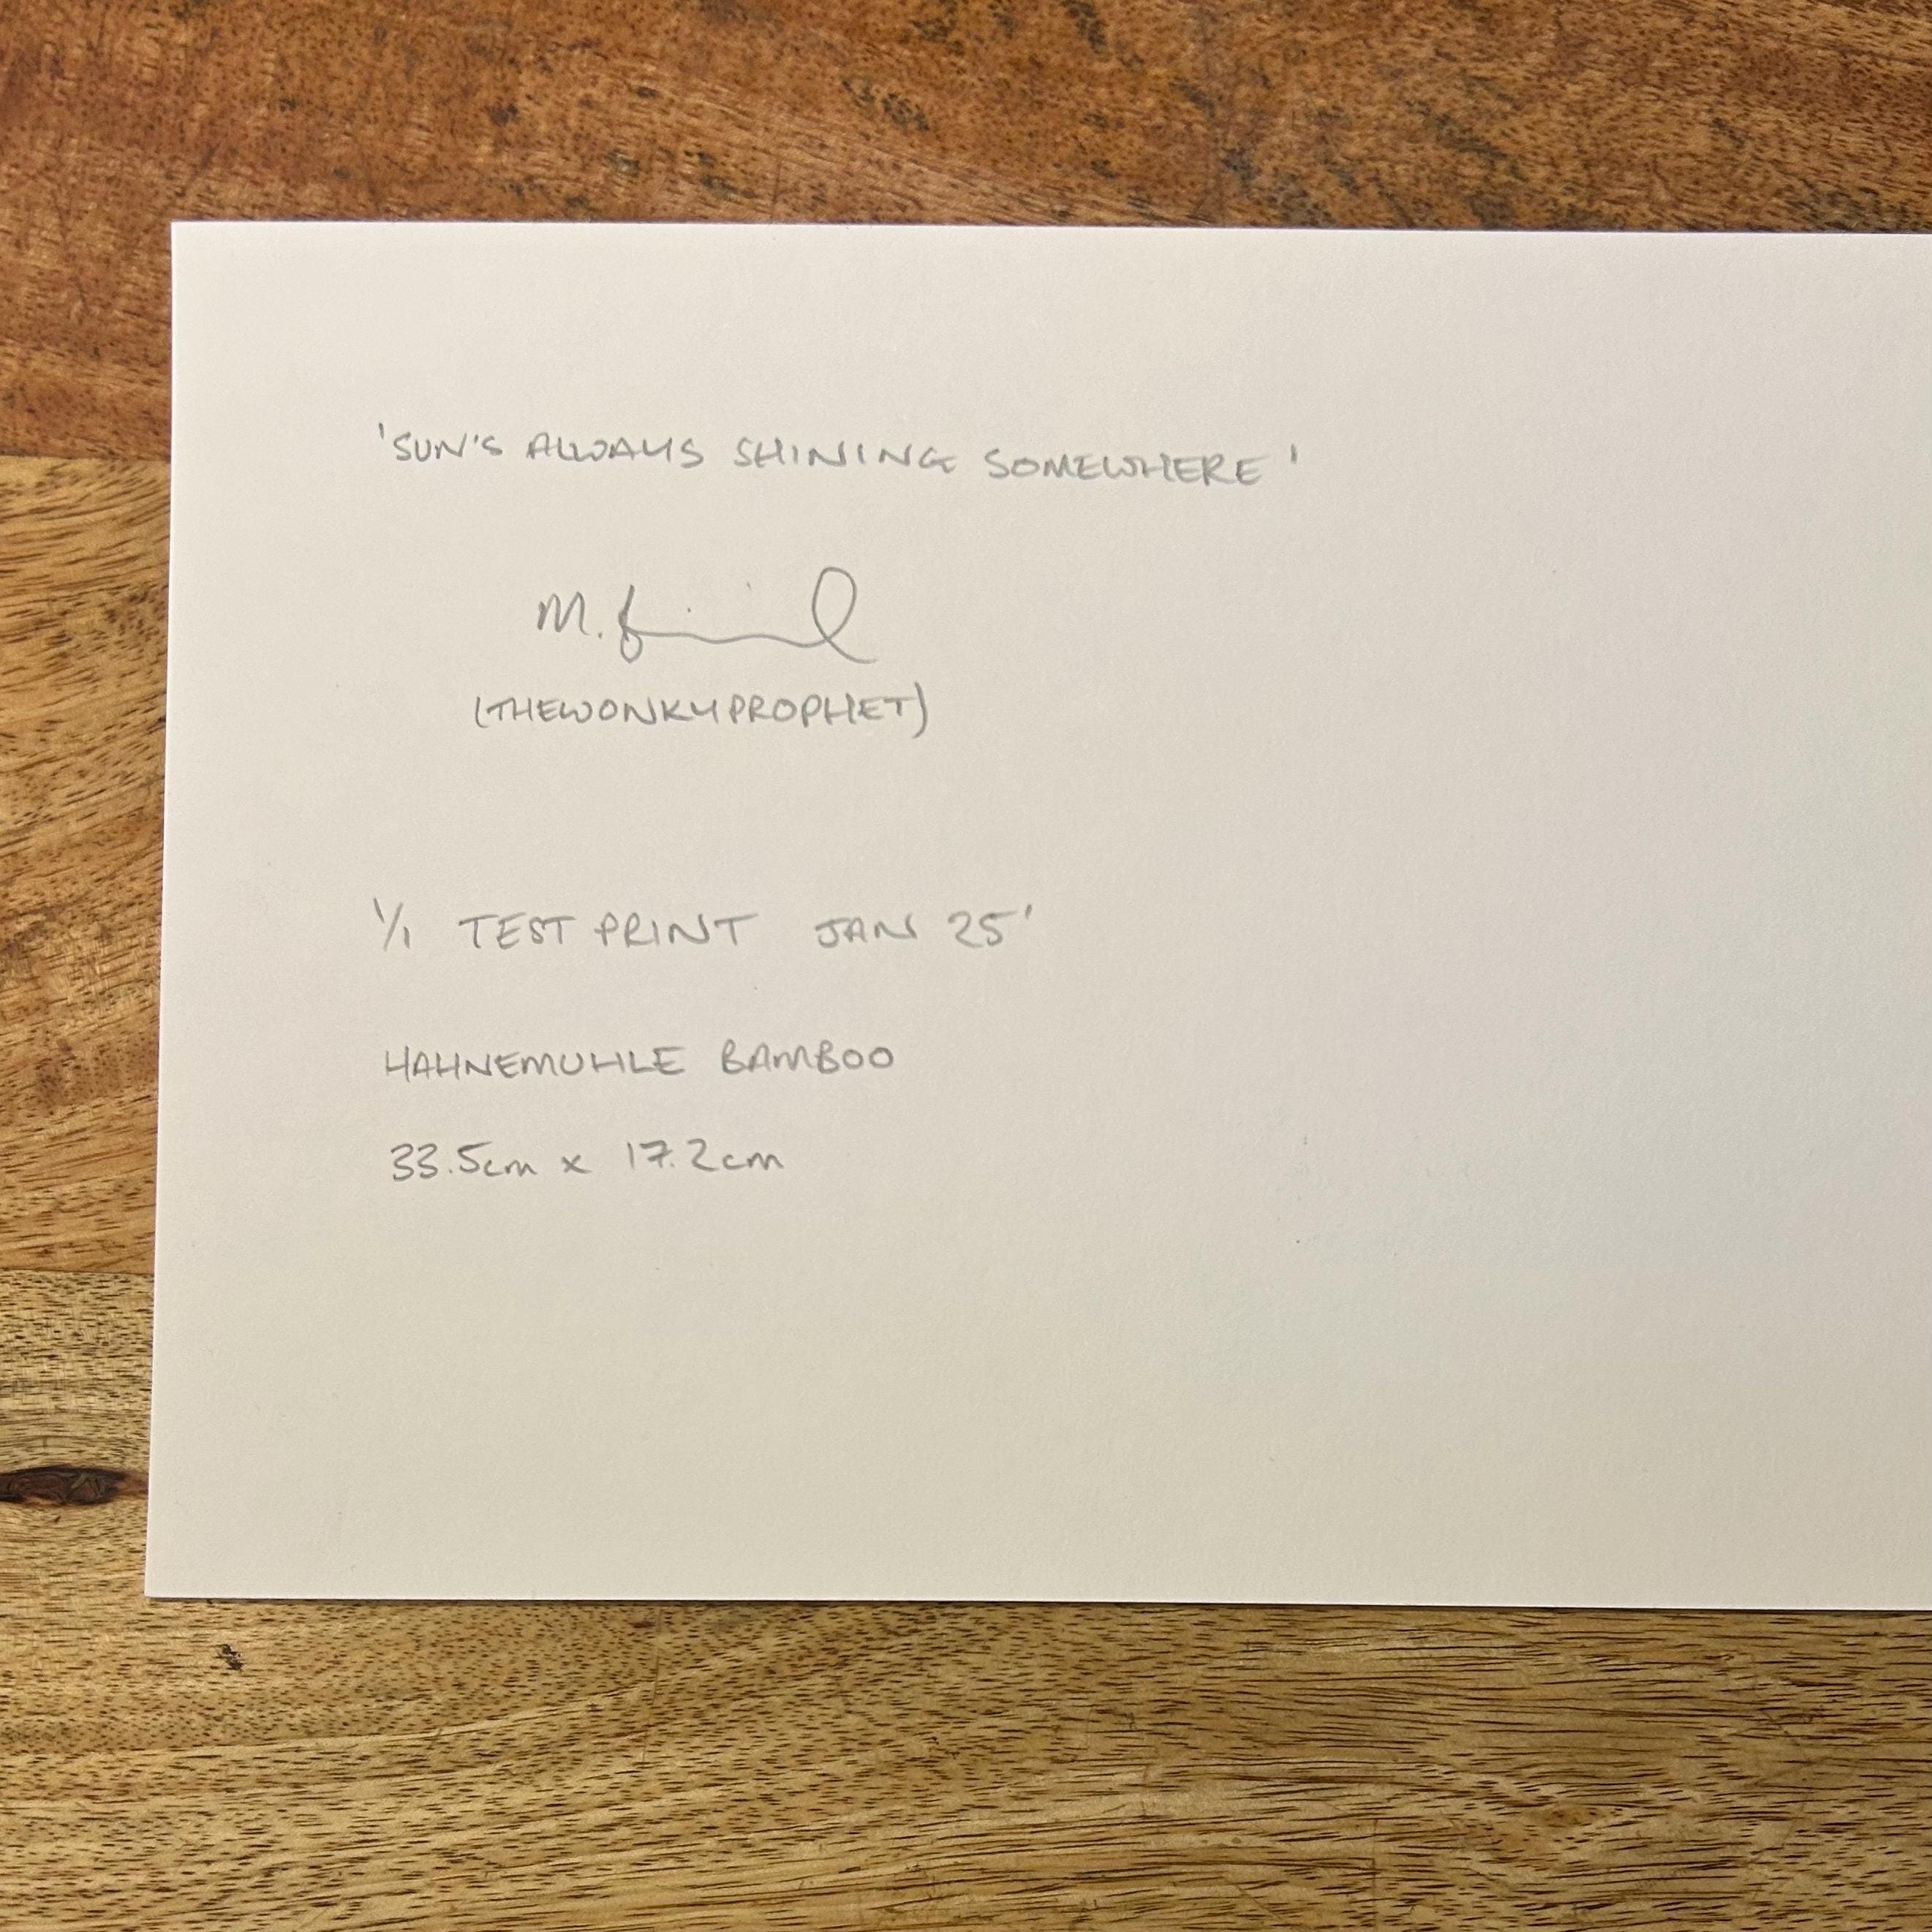 'SUN'S ALWAYS SHINING SOMEWHERE'
M.
(THEWONKYPROPHET)
1/1 TEST PRINT JAN 25'
HAHNEMUHLE BAMBOO
33.5cm x 17.2cm